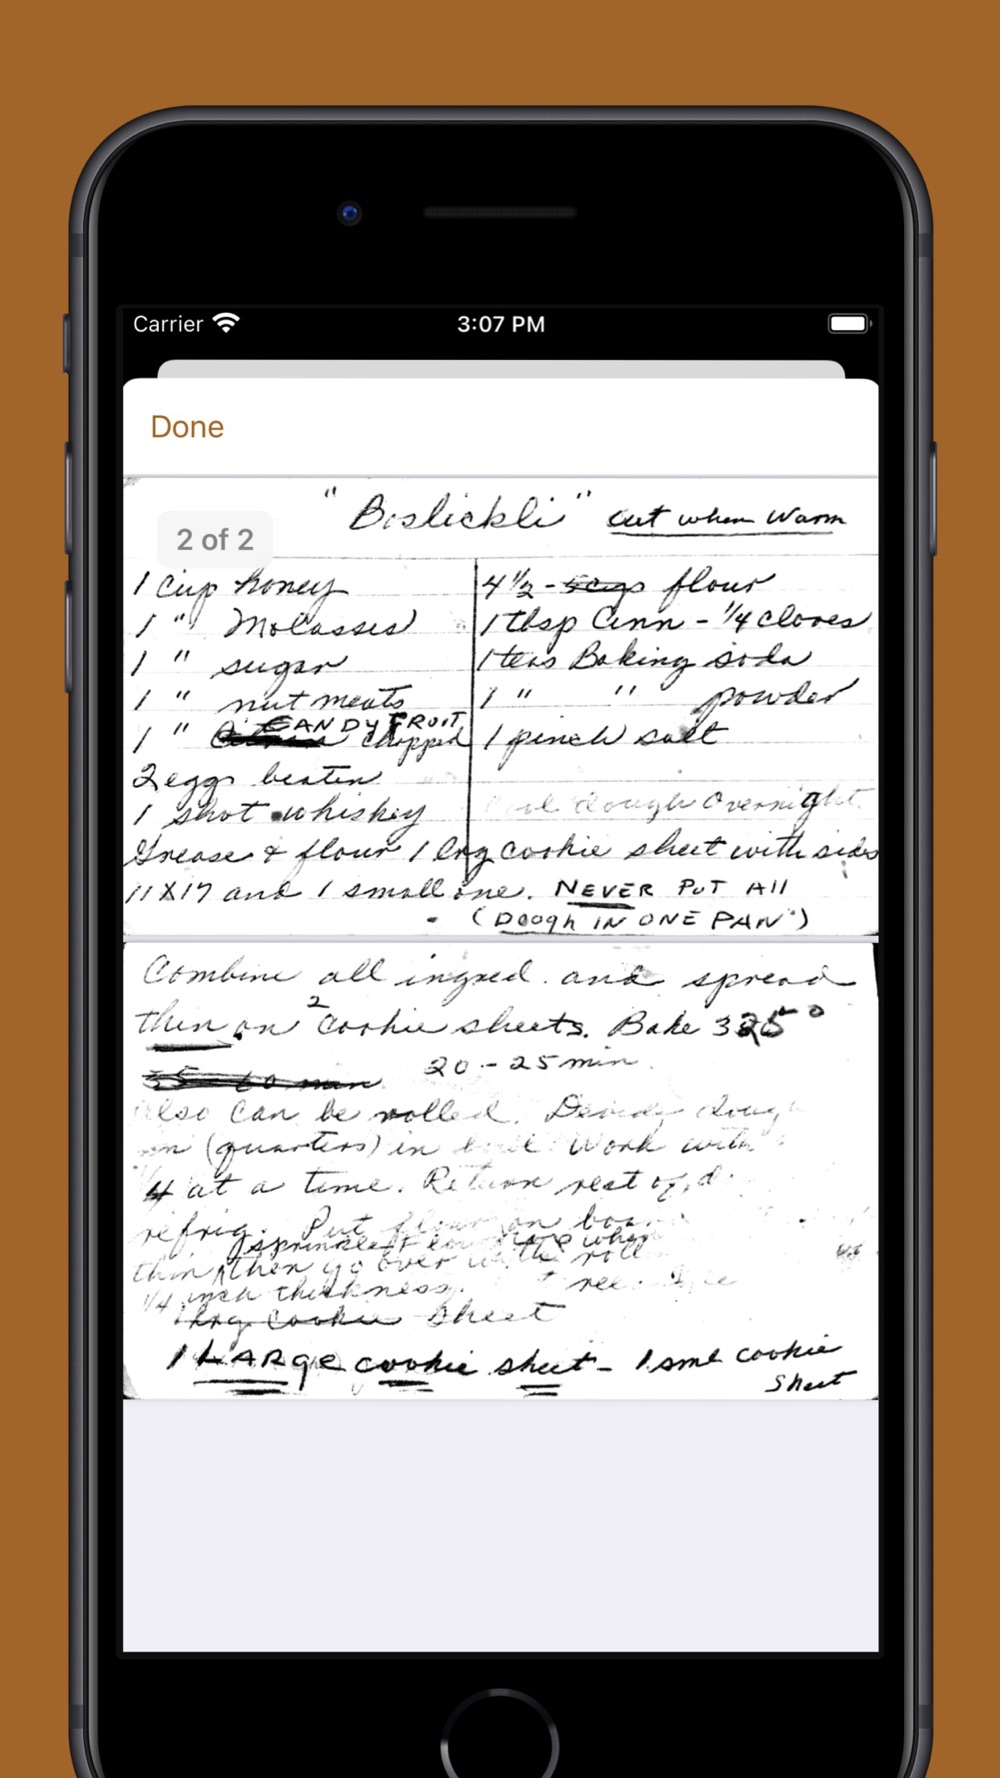 Carrier 3:07 PM
Done
2 of 2
"Boslickli" Cut when Warm
1 Cup honey
1 " Molasses
1 " sugar
1 " nut meats
CANDY FRUIT
1 " chopped
2 eggs beaten
1 shot whiskey
4 1/2 - 5 cups flour
1 tbsp Cinn - 1/4 cloves
1 teas Baking soda
1 " " powder
1 pinch salt
dough Overnight.
Grease & flour 1 lrg cookie sheet with sides
11x17 and 1 small one. NEVER PUT All
(Dough IN ONE PAN)
Combine all ingred. and spread
thin on 2 Cookie sheets. Bake 325°
35 - 60 min 20 - 25 min.
Also Can be rolled.
(quarters) in Work with
at a time. Return rest of
refrig. Put flour on
sprinkle
thin, then go over with roll
1/4 inch thickness.
1 lrg Cookie Sheet
1 LARge cookie sheet - 1 sml cookie
Sheet